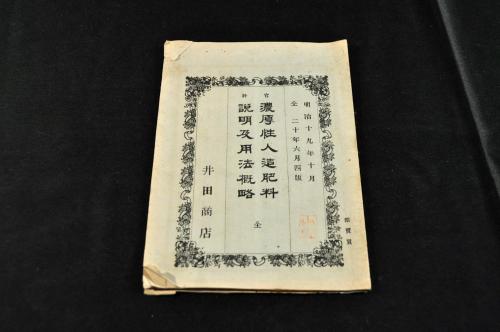 明治十九年十月
仝二十年六月四版
官許
濃厚性人造肥料
説明及用法概略
仝
井田商店